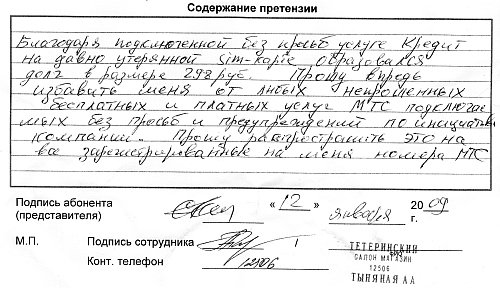 Содержание претензии
Благодаря подключенной без просьб услуге Кредит
на давно утерянной Sim-карте образовался
долг в размере 298 руб. Прошу впредь
избавить меня от любых непрошенных
бесплатных и платных услуг МТС подключае
мых без просьб и предупреждений по инициативе
компании. Прошу распространить это на
все зарегистрированные на меня номера МТС
Подпись абонента
(представителя) « 12 » января 2009
М.П. Подпись сотрудника /
Конт. телефон 12506
ТЕТЕРИНСКИЙ
САЛОН МАГАЗИН
12506
ТЫНЯНАЯ АА